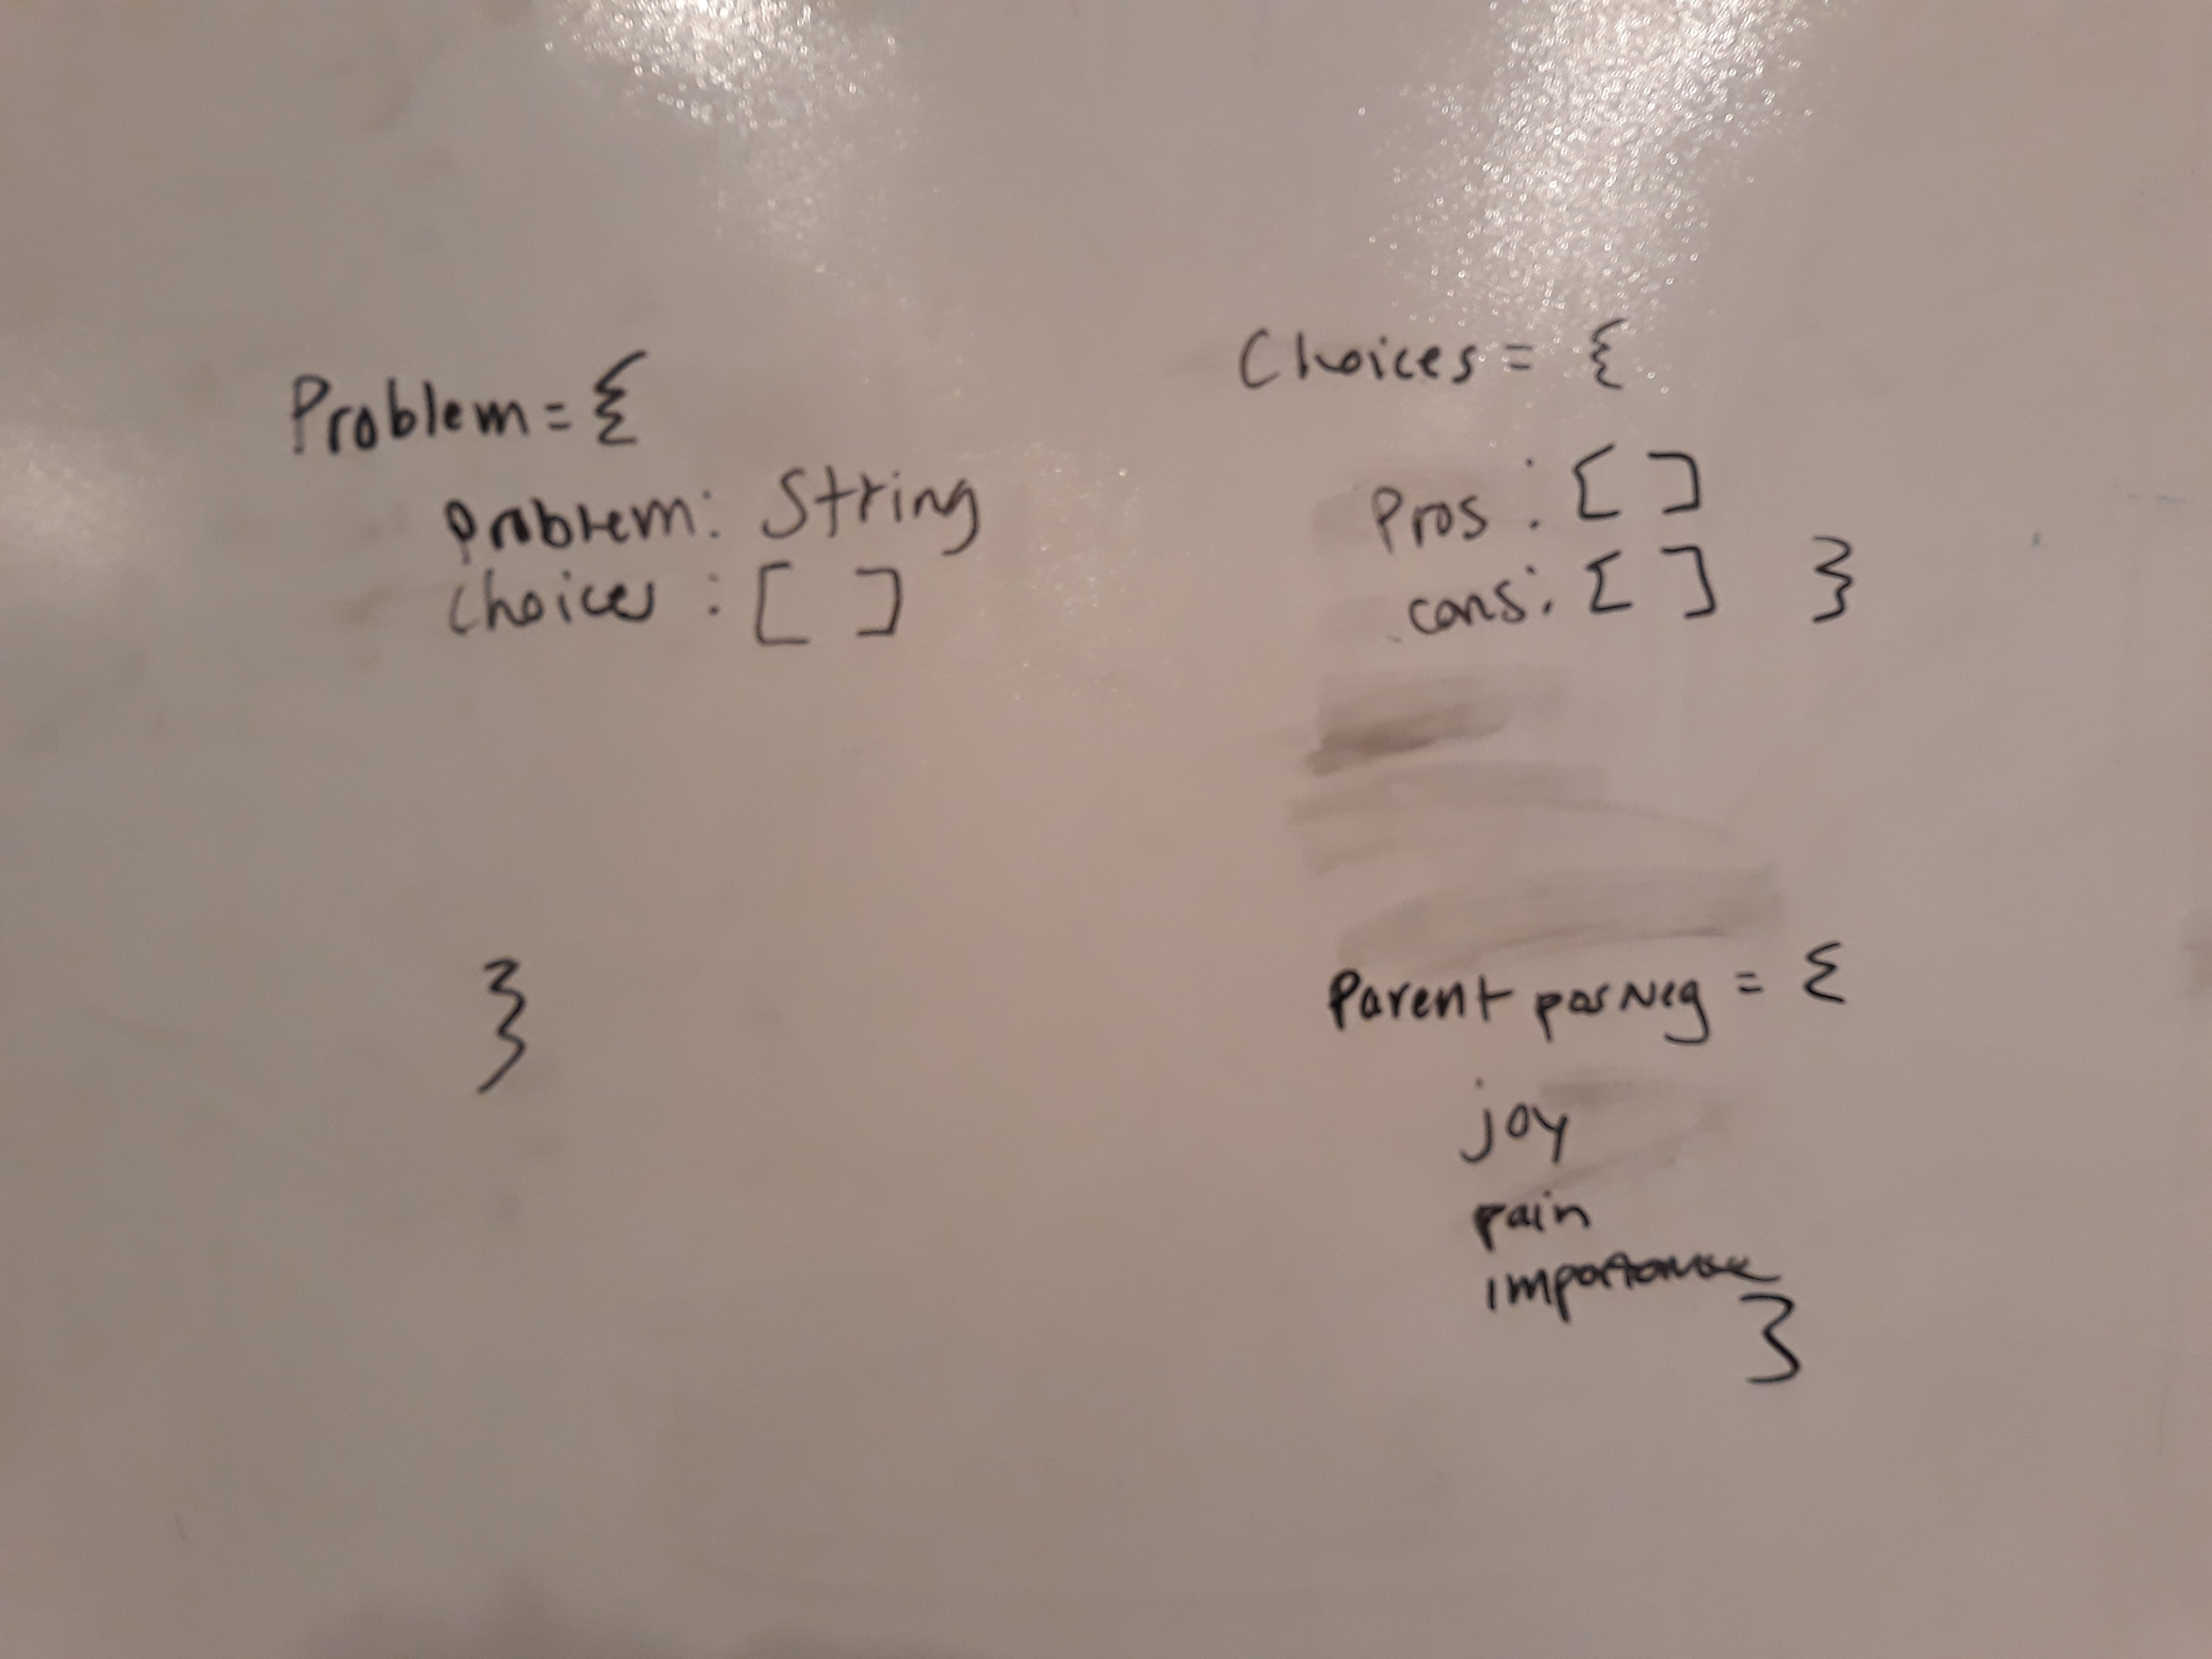 Problem = {
problem: String
choices : [ ]
}
Choices = {
Pros : [ ]
cons : [ ] }
Parent posNeg = {
joy
pain
importance
}